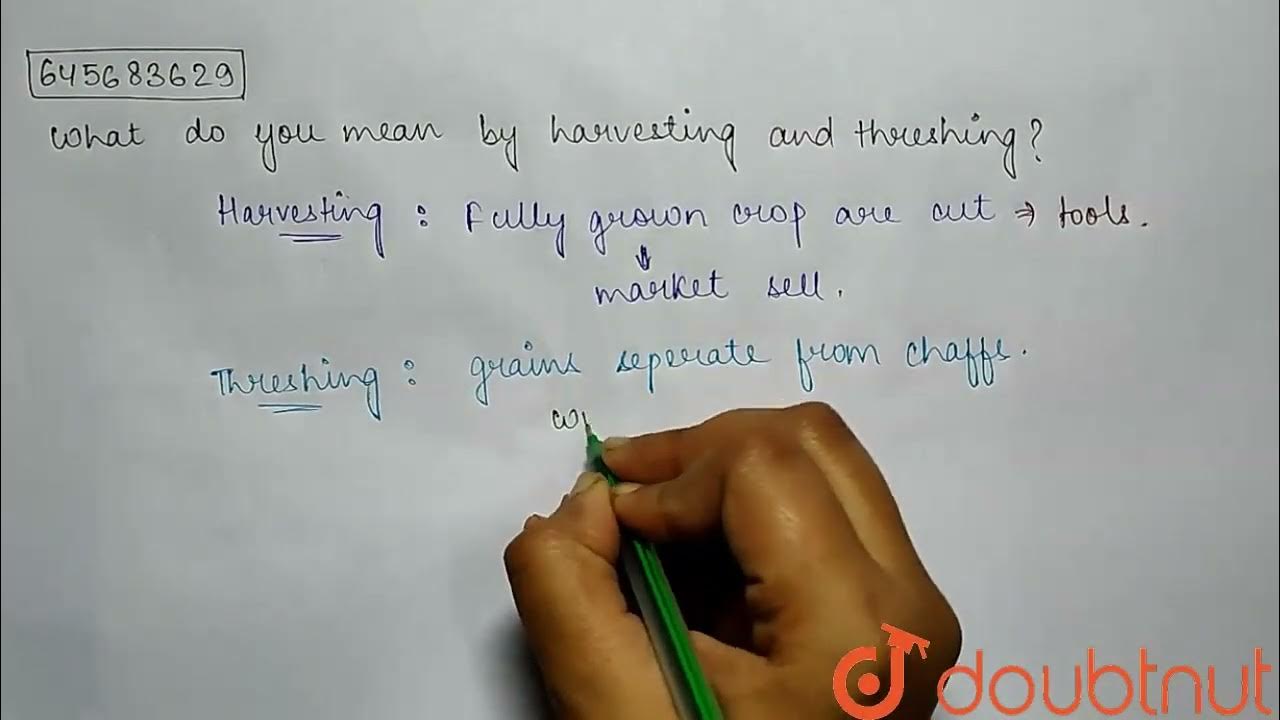 645683629
What do you mean by harvesting and threshing?
Harvesting : Fully grown crop are cut ⇒ tools.
market sell.
Threshing : grains seperate from chaffs.
doubtnut